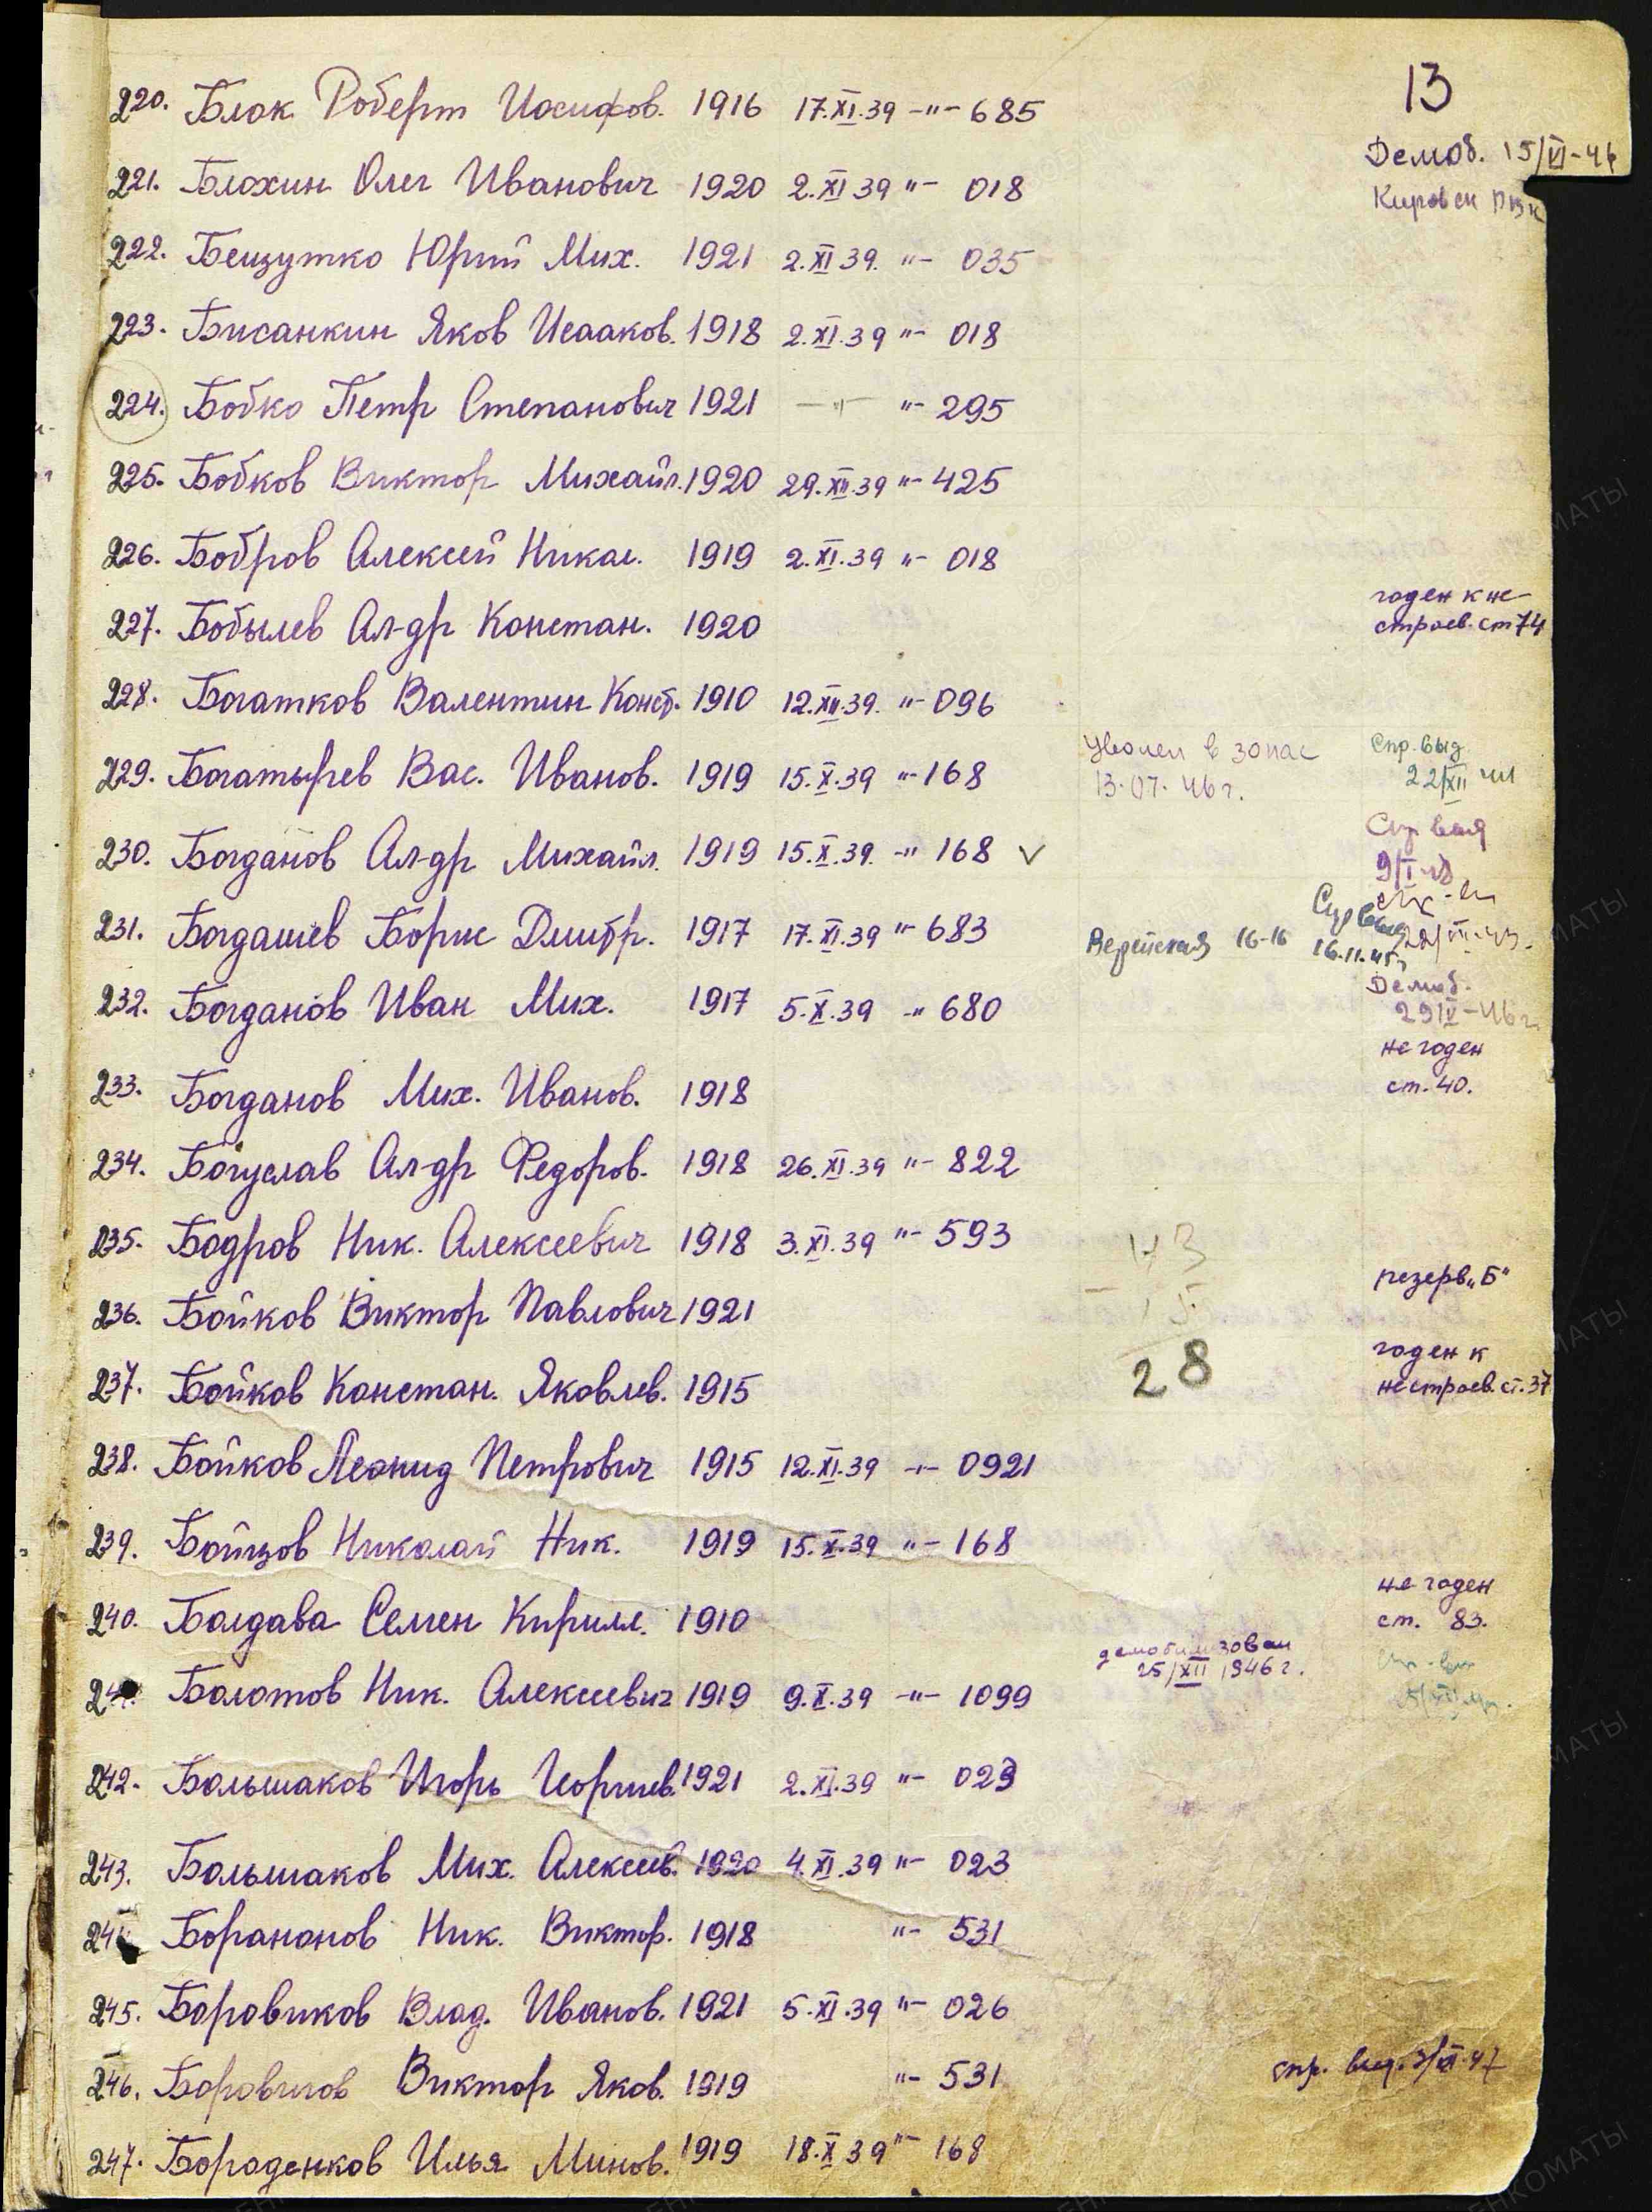 13
220. Блок Роберт Иосифов. 1916 17.XI.39 -"- 685
Демоб. 15/VI-46
221. Блохин Олег Иванович 1920 2.XI 39 "- 018
Кировск РВК
222. Бешутко Юрий Мих. 1921 2.XI 39. "- 035
223. Бисанкин Яков Исааков. 1918 2.XI.39 "- 018
224. Бобко Петр Степанович 1921 -"- "- 295
225. Бобков Виктор Михайл. 1920 29.XII.39 "- 425
226. Бобров Алексей Никол. 1919 2.XI.39 "- 018
годен к не-
227. Бобылев Ал-др Констан. 1920 строев. ст 74
228. Богатков Валентин Конст. 1910 12.XII.39. "- 096
229. Богатырев Вас. Иванов. 1919 15.X.39 "- 168
Уволен в запас
13.07.46 г.
Спр. выд.
22/XII
230. Богданов Ал-др Михайл. 1919 15.X.39. -" 168 ✓
9/I
231. Богдашев Борис Дмитр. 1917 17.XI.39 "- 683
Верейская 16-16
16.11.45 г
232. Богданов Иван Мих. 1917 5.X.39 -" 680
Демоб.
29/V-46 г.
не годен
233. Богданов Мих. Иванов. 1918 ст. 40.
234. Богуслав Ал-др Федоров. 1918 26.XI.39 "- 822
235. Бодров Ник. Алексеевич 1918 3.XI.39 "- 593
43
- 15
28
резерв "Б"
236. Бойков Виктор Павлович 1921
годен к
237. Бойков Констан. Яковлев. 1915 нестроев. ст. 37
238. Бойков Леонид Петрович 1915 12.XI.39 -"- 0921
239. Бойцов Николай Ник. 1919 15.X.39 "- 168
не годен
240. Болдава Семен Кирилл. 1910 ст. 83.
демобилизован
25/XII 1946 г.
24 Болотов Ник. Алексеевич 1919 9.X.39 -"- 1099
242. Большаков Игорь Георгиев. 1921 2.XI.39 "- 023
243. Большаков Мих. Алексеев. 1920 4.XI.39 "- 023
244 Боранонов Ник. Виктор. 1918 "- 531
245. Боровиков Влад. Иванов. 1921 5.XI.39 "- 026
246. Боровиков Виктор Яков. 1919 "- 531
спр. выд. 3/XI-47
247. Бороденков Илья Минов. 1919 18.X 39 "- 168